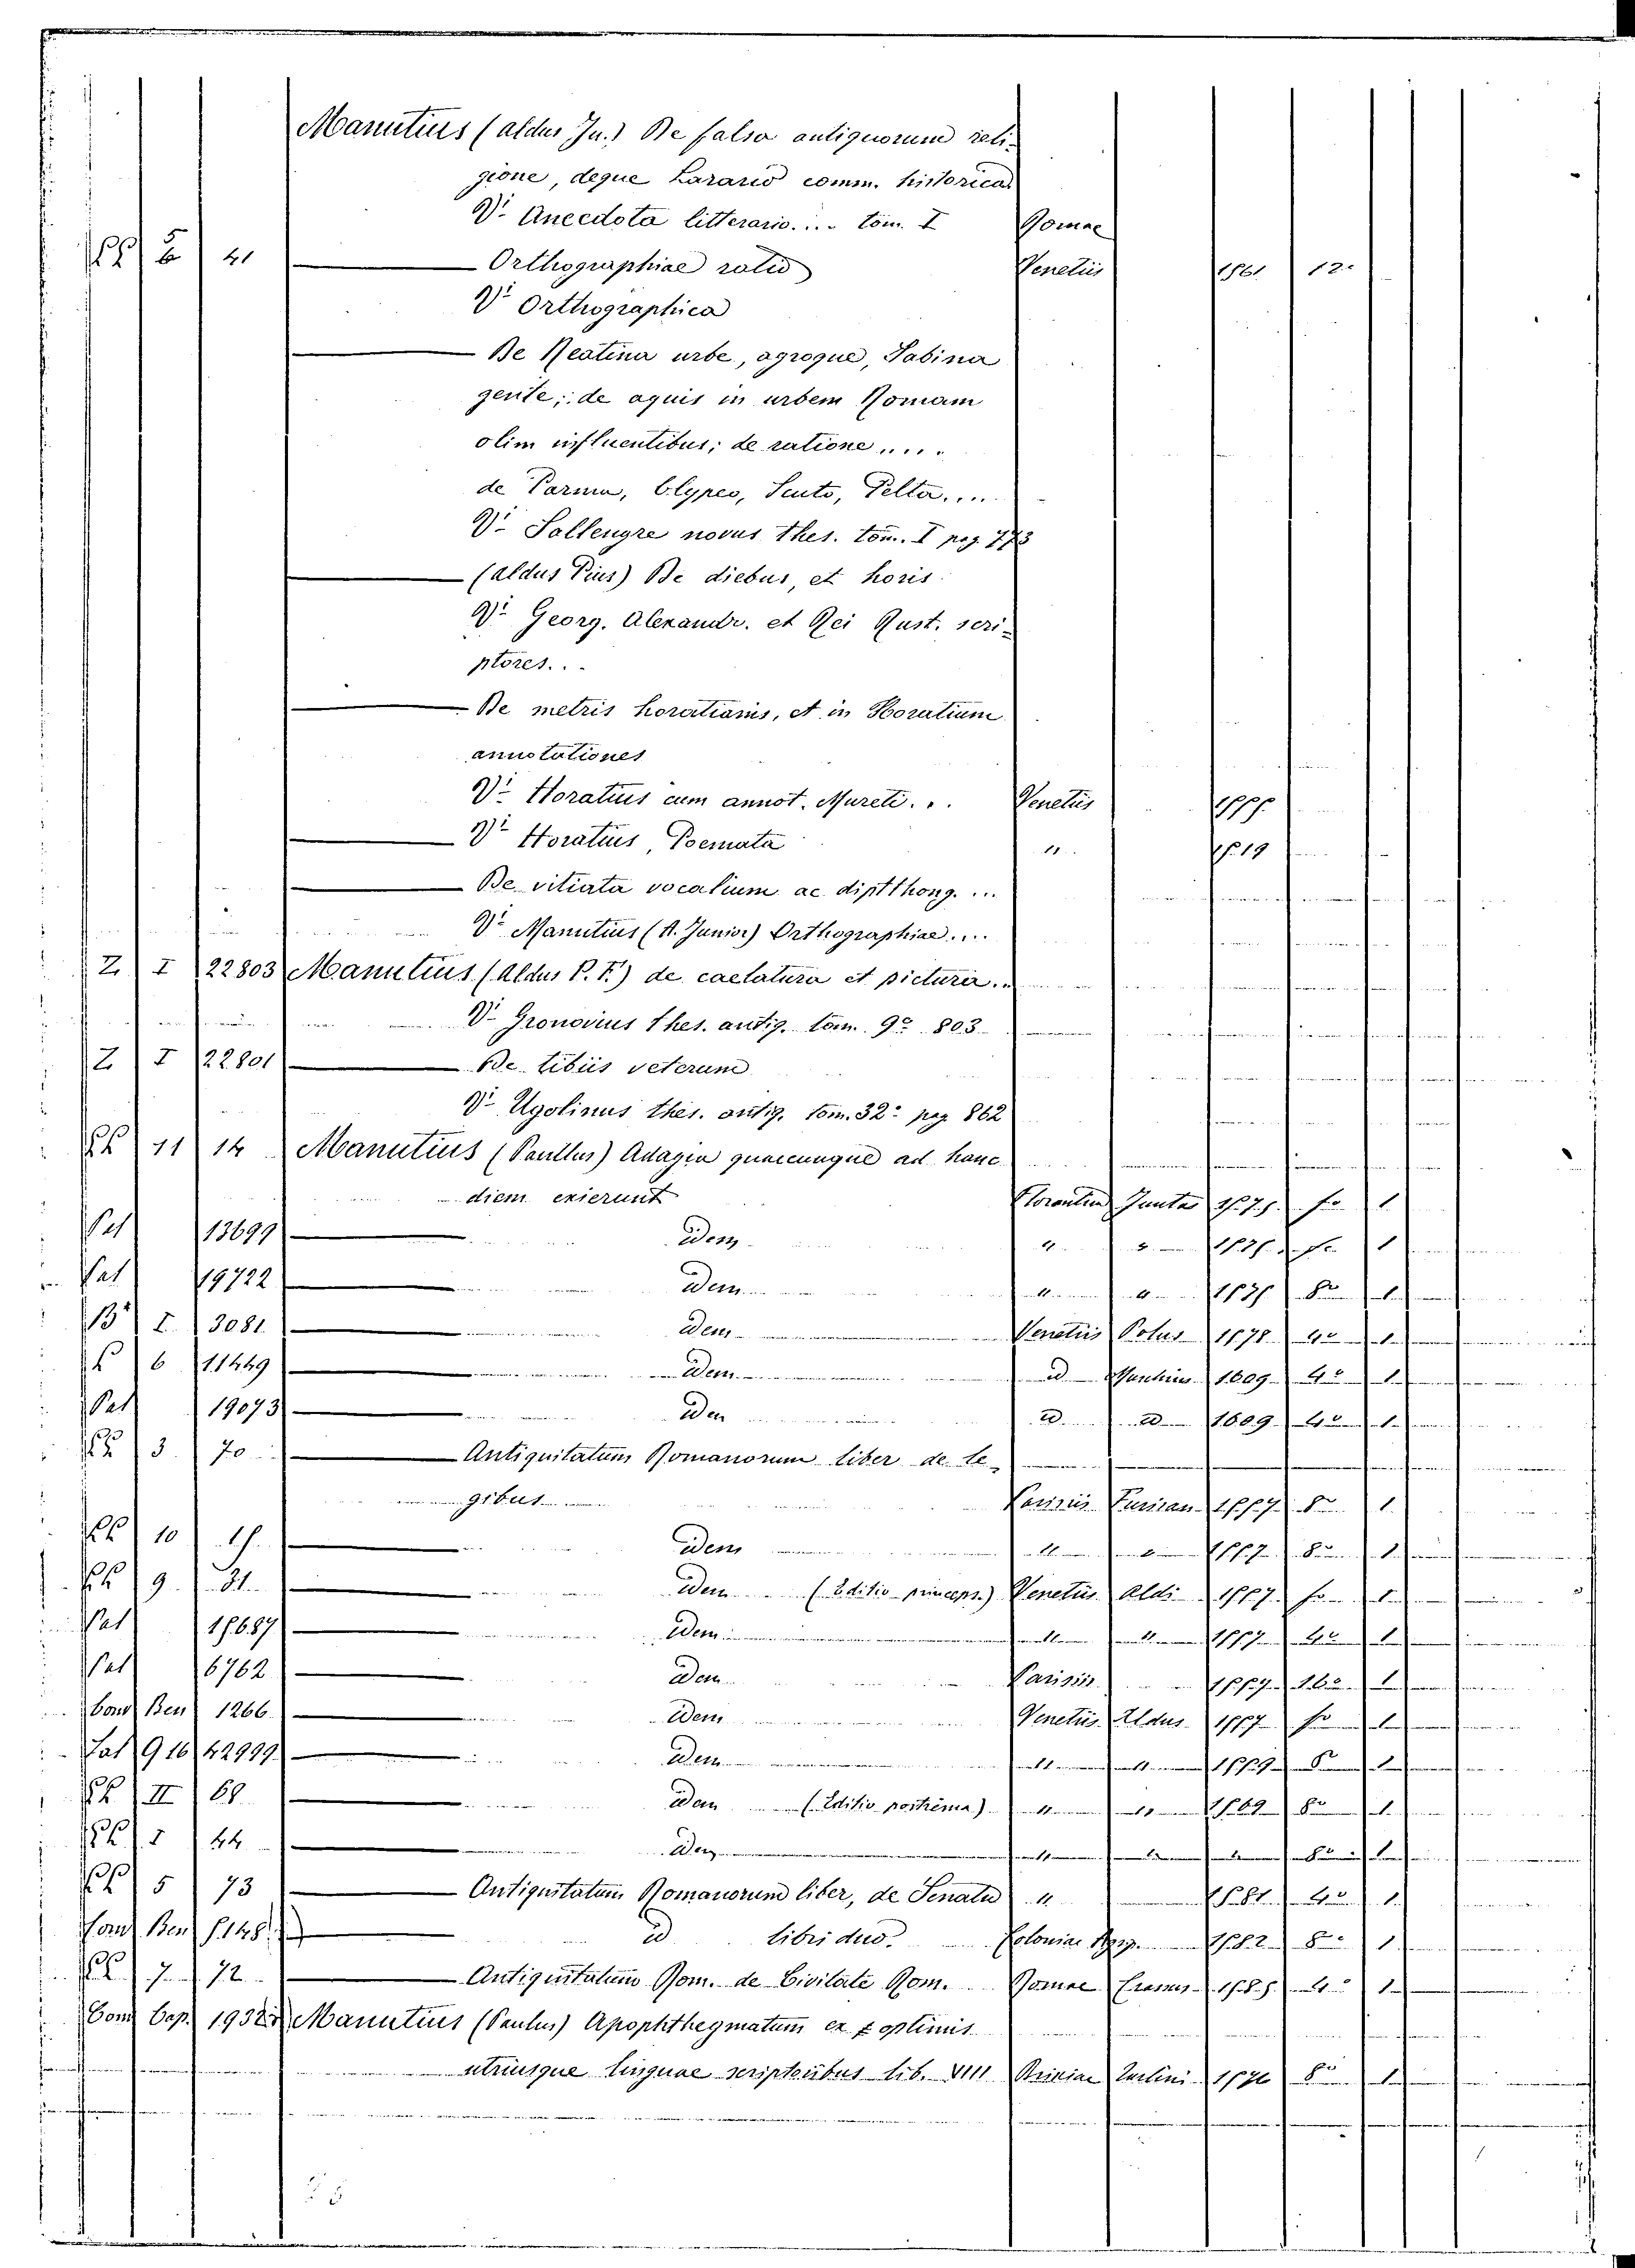 Manutius (Aldus Ju.) De falsa antiquorum reli-
gione, deque Larario comm. historica
Vi. Anecdota litterario.... tom. I Romae
41 Orthographiae ratio Venetiis 1561 12°
Vi Orthographica
De Reatina urbe, agroque, Sabina
gente; de aquis in urbem Romam
olim influentibus; de ratione.....
de Parma, Clypeo, Scuto, Pelta.....
Vi. Sallengre novus thes. tom. I pag. 773
(Aldus Pius) De diebus, et horis
Vi. Georg. Alexandr. et Rei Rust. scri-
ptores...
De metris horatianis, et in Horatium
annotationes
Vi. Horatius cum annot. Mureti... Venetiis 1555
Vi. Horatius, Poemata " 1519
De vitiata vocalium ac diptthong. ...
Vi. Manutius (A. Junior) Orthographiae....
Z I 22803 Manutius (Aldus P. F.) de caelatura et pictura..
Vi. Gronovius thes. antiq. tom. 9° 803
Z I 22801 De tibiis veterum
Vi. Ugolinus thes. antiq. tom. 32° pag 862
11 14 Manutius (Paullus) Adagia quaecunque ad hanc
diem exierunt Florentiae Juntas 1575 fo 1
Pal 13699 idem " " 1575 fo 1
Pal 19722 idem " " 1575 8o 1
B I 3081 idem Venetiis Polus 1578 4o 1
6 11449 idem id 1609 4o 1
Pal 19073 idem id id 1609 4o 1
3 70 Antiquitatum Romanorum liber de le-
gibus Parisiis 1557 8o 1
10 15 idem " " 1557 8o 1
9 31 idem (Editio princeps.) Venetiis Aldi 1557 fo 1
Pal 15687 idem " " 1557 4o 1
Pal 6762 idem Parisiis 1557 16o 1
Cons Ben 1266 idem Venetiis Aldus 1557 fo 1
Pal 9 16 42999 idem " " 1559 8o 1
II 68 idem (Editio postrema) " " 1569 8o 1
I 44 idem " " " 8o 1
5 73 Antiquitatum Romanorum liber, de Senatu " 1581 4o 1
Cons Ben 5148 id libri duo. Coloniae Agrip. 1582 8o 1
7 72 Antiquitatum Rom. de Civitate Rom. Romae 1585 4o 1
Cons Cap. Manutius (Paulus) Apophthegmatum ex optimis
utriusque linguae scriptoribus lib. VIII 1576 8o 1